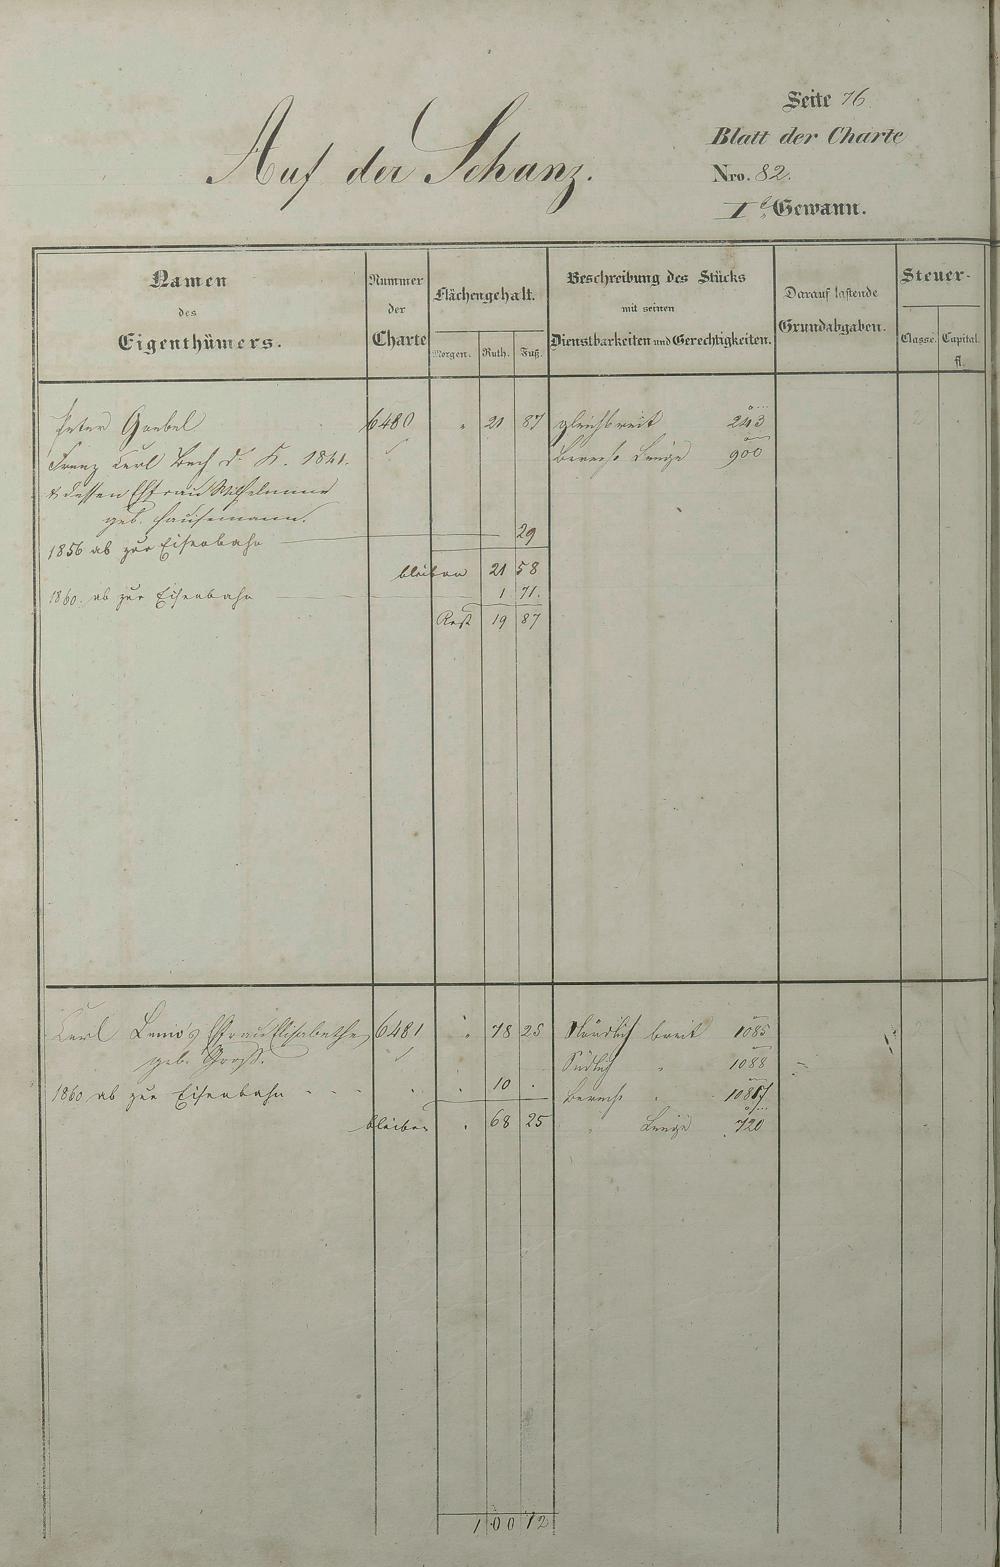 Seite 76
Blatt der Charte
Nro. 82.
Auf der Schanz.
Ie Gewann.
Namen des Eigenthümers.
Nummer der Charte
Flächengehalt.
Morgen. Ruth. Fuß.
Beschreibung des Stücks mit seinen Dienstbarkeiten und Gerechtigkeiten.
Darauf lastende Grundabgaben.
Steuer-
Classe. Capital. fl.
Peter Goebel 6480 " 21 87 gleichbreit 243
Franz Carl Bech d. K. 1841. berech. Länge 900
& dessen Ehfrau Wilhelmine
geb. Hausemann.
1856 ab zur Eisenbahn 29
bleiben 21 58
1860. ab zur Eisenbahn 1 71.
Rest 19 87
Carl Ehfrau Elisabethe 6481 " 78 25 Nördlich breit 1085
geb. Groß. Südlich " 1088
1860 ab zur Eisenbahn " 10 . berech. " 1087
bleiben " 68 25 " Länge 720
100 12